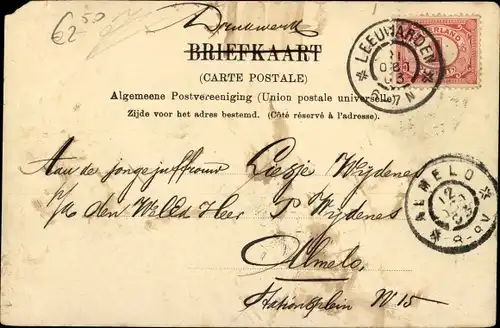 €2 50
Drukwerk
BRIEFKAART
(CARTE POSTALE)
Algemeene Postvereeniging (Union postale universelle)
Zijde voor het adres bestemd. (Côté réservé à l'adresse).
NEDERLAND
LEEUWARDEN
6-7 N
Aan de jongejuffrouw Liesje Wijdenes
p/a den WelEd Heer P Wijdenes
Almelo,
Stationsplein N 15
ALMELO
12
8-9V